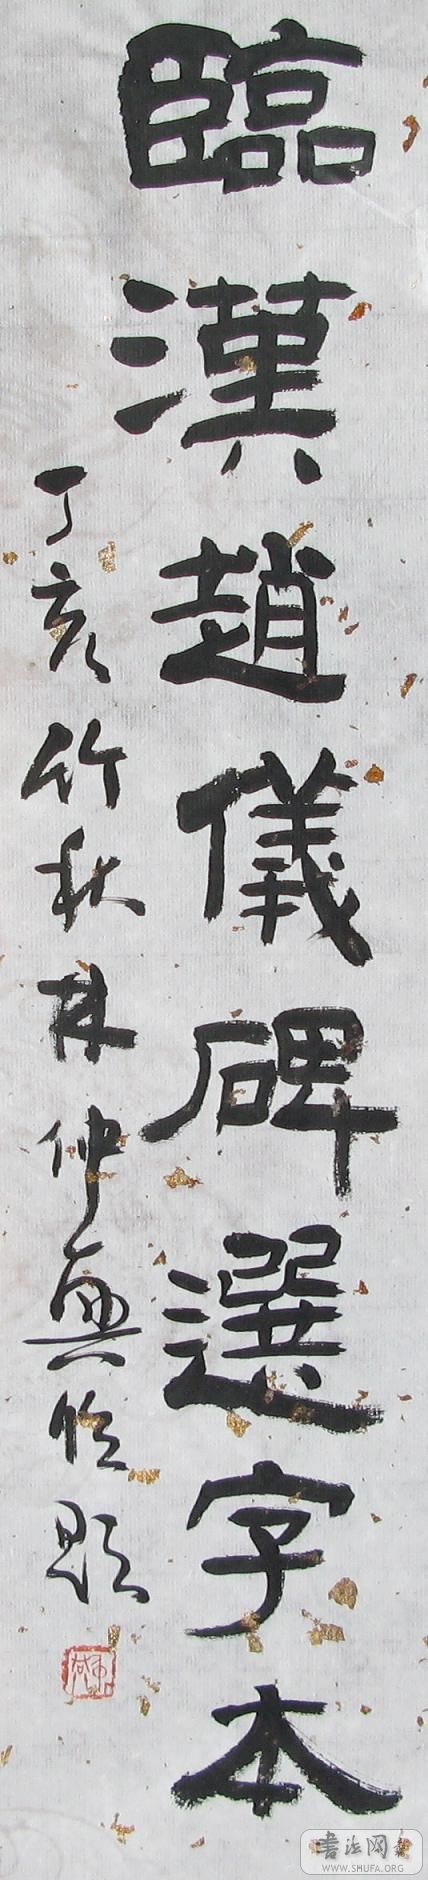 臨漢趙儀碑選字本
丁亥竹秋林仲興臨題
書法网
WWW.SHUFA.ORG